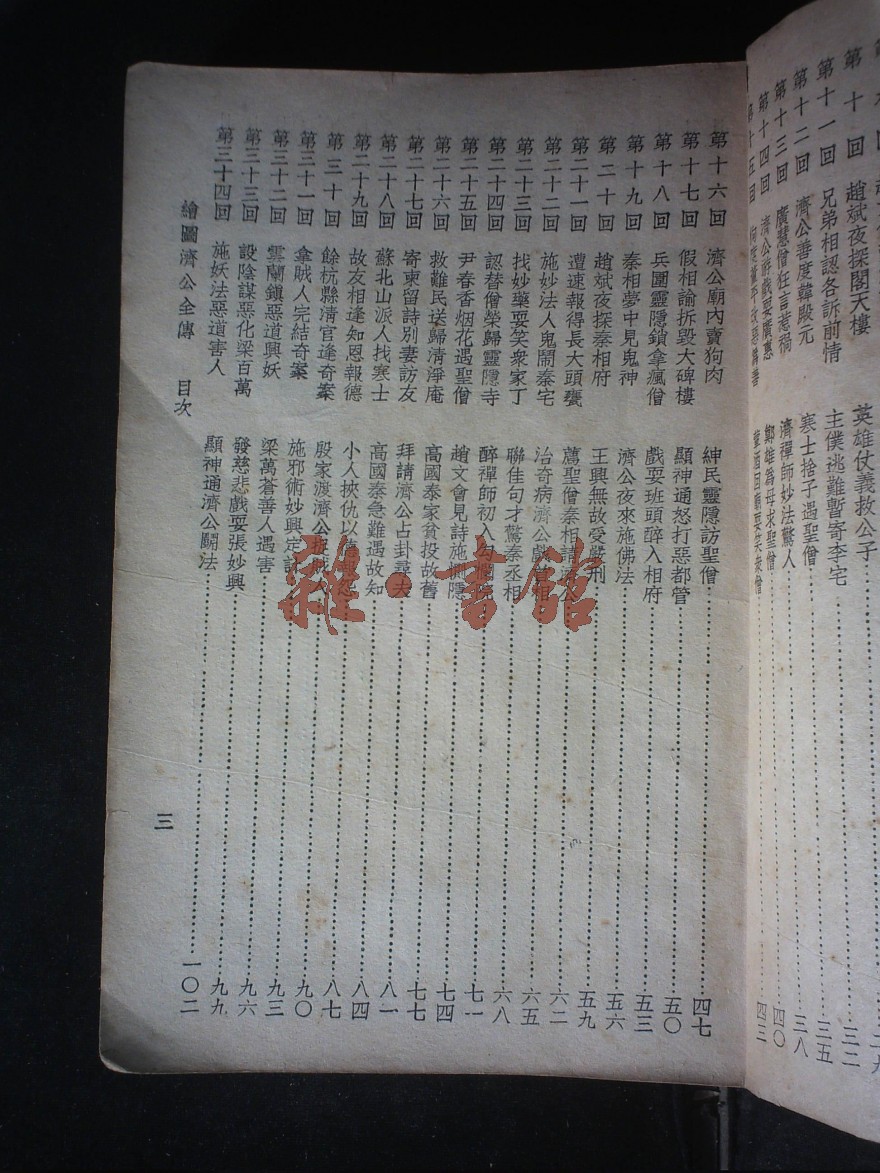 第十回 趙斌夜探閣天樓 英雄仗義救公子 三二
第十一回 兄弟相認各訴前情 主僕逃難暫寄李宅 三五
第十二回 濟公善度韓殿元 寒士捨子遇聖僧 三八
第十三回 廣慧僧狂言惹禍 濟禪師妙法驚人 四〇
第十四回 濟公游戲耍廣惠 鄭雄為母求聖僧 四三
第十五回
第十六回 濟公廟內賣狗肉 紳民靈隱訪聖僧 四七
第十七回 假相諭拆毀大碑樓 顯神通怒打惡都管 五〇
第十八回 兵圍靈隱鎖拿瘋僧 戲耍班頭醉入相府 五三
第十九回 秦相夢中見鬼神 濟公夜來施佛法 五六
第二十回 趙斌夜探秦相府 王興無故受嚴刑 五九
第二十一回 遭速報得長大頭甕 薦聖僧秦相請濟公 六二
第二十二回 施妙法人鬼鬧秦宅 治奇病濟公戲首相 六五
第二十三回 找妙藥耍笑衆家丁 聯佳句才驚秦丞相 六八
第二十四回 認替僧榮歸靈隱寺 醉禪師初入勾欄院 七一
第二十五回 尹春香烟花遇聖僧 趙文會見詩施惻隱 七四
第二十六回 救難民送歸清淨庵 高國泰家貧投故舊 七七
第二十七回 寄柬留詩別妻訪友 拜請濟公占卦尋夫 八一
第二十八回 蘇北山派人找寒士 高國泰急難遇故知 八四
第二十九回 故友相逢知恩報德 小人挾仇以德報怨 八七
第三十回 餘杭縣清官逢奇案 殷家渡濟公捉賊 九〇
第三十一回 拿賊人完結奇案 施邪術妙興定計 九三
第三十二回 雲蘭鎮惡道興妖 梁萬蒼善人遇害 九六
第三十三回 設陰謀惡化梁百萬 發慈悲戲耍張妙興 九九
第三十四回 施妖法惡道害人 顯神通濟公鬭法 一〇二
繪圖濟公全傳 目次 三
雜·書館